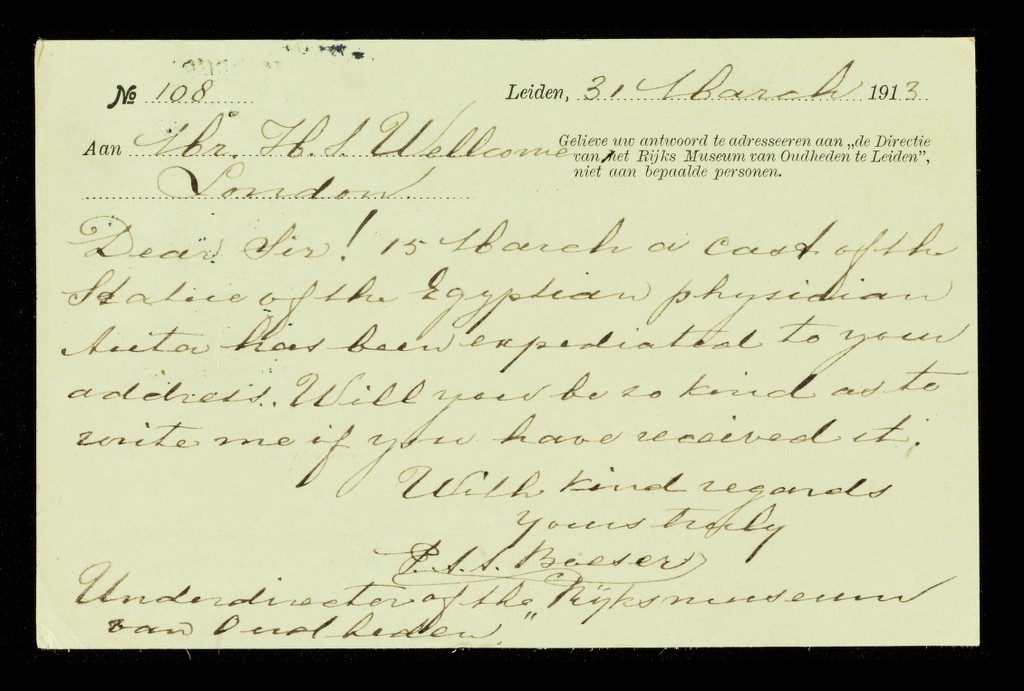 No 108 Leiden, 31 March 1913
Aan Mr. H. S. Wellcome,
London.
Gelieve uw antwoord te adresseeren aan „de Directie
van het Rijks Museum van Oudheden te Leiden",
niet aan bepaalde personen.
Dear Sir! 15 March a cast of the
Statue of the Egyptian physidian
Auta has been expediated to your
address. Will you be so kind as to
write me if you have received it.
With kind regards
yours truly
P.A.A. Boeser
Underdirector of the „Rijksmuseum
van Oudheden."